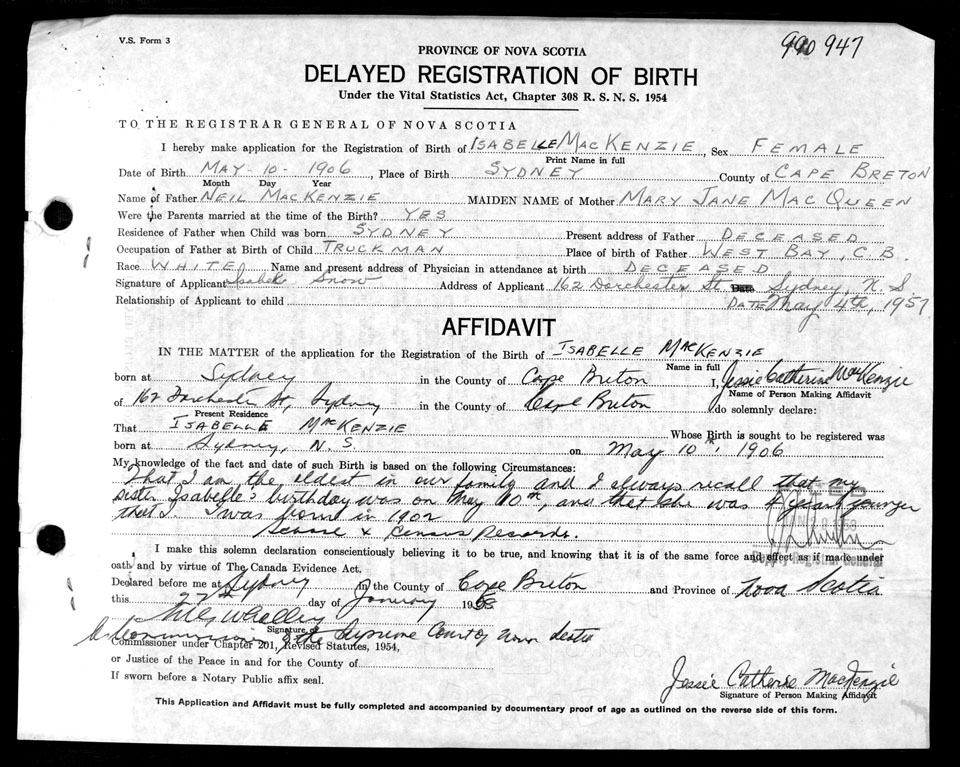 V.S. Form 3
990 947
PROVINCE OF NOVA SCOTIA
DELAYED REGISTRATION OF BIRTH
Under the Vital Statistics Act, Chapter 308 R. S. N. S. 1954
TO THE REGISTRAR GENERAL OF NOVA SCOTIA
I hereby make application for the Registration of Birth of ISABELLE MACKENZIE, Sex FEMALE
Print Name in full
Date of Birth MAY - 10 - 1906, Place of Birth SYDNEY County of CAPE BRETON
Month Day Year
Name of Father NEIL MACKENZIE MAIDEN NAME of Mother MARY JANE MACQUEEN
Were the Parents married at the time of the Birth? YES
Residence of Father when Child was born SYDNEY Present address of Father DECEASED
Occupation of Father at Birth of Child TRUCKMAN Place of birth of Father WEST BAY, C.B.
Race WHITE Name and present address of Physician in attendance at birth DECEASED
Signature of Applicant Isabelle Snow Address of Applicant 162 Dorchester St. Sydney, N.S.
Relationship of Applicant to child DATE May 4th, 1957
AFFIDAVIT
IN THE MATTER of the application for the Registration of the Birth of ISABELLE MACKENZIE
Name in full
born at Sydney in the County of Cape Breton I, Jessie Catherine MacKenzie
Name of Person Making Affidavit
of 162 Dorchester St, Sydney in the County of Cape Breton do solemnly declare:
Present Residence
That ISABELLE MACKENZIE Whose Birth is sought to be registered was
born at Sydney, N.S on May 10, 1906
My knowledge of the fact and date of such Birth is based on the following Circumstances:
That I am the eldest in our family and I always recall that my
sister Isabelle's birthday was on May 10th, and that she was 4 years younger
than I. I was born in 1902
& Census Records.
Deputy Registrar General
I make this solemn declaration conscientiously believing it to be true, and knowing that it is of the same force and effect as if made under
oath and by virtue of The Canada Evidence Act.
Declared before me at Sydney in the County of Cape Breton and Province of Nova Scotia
this 22nd day of January 1958
Signature of
A Commissioner of the Supreme Court of Nova Scotia
Commissioner under Chapter 201, Revised Statutes, 1954,
or Justice of the Peace in and for the County of
If sworn before a Notary Public affix seal.
Jessie Catherine MacKenzie
Signature of Person Making Affidavit
This Application and Affidavit must be fully completed and accompanied by documentary proof of age as outlined on the reverse side of this form.